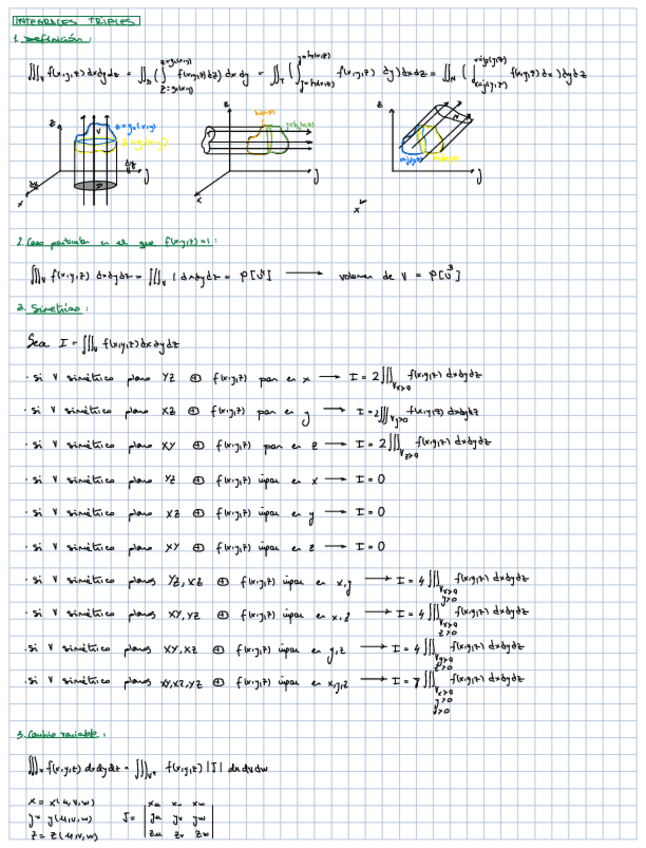 INTEGRALES TRIPLES
1. Definición:
∭_V f(x,y,z) dxdydz = ∬_D (∫_{z=g₁(x,y)}^{z=g₂(x,y)} f(x,y,z) dz) dxdy = ∬_T (∫_{y=h₁(x,z)}^{y=h₂(x,z)} f(x,y,z) dy) dxdz = ∬_N (∫ f(x,y,z) dx) dydz
z z z
z=g₂(x,y)
z=g₁(x,y)
y y y
x x x
2. Caso particular en el que f(x,y,z)=1:
∭_V f(x,y,z) dxdydz = ∭_V 1 dxdydz = μ[V] → volumen de V = μ[U³]
3. Simetrías:
Sea I = ∭_V f(x,y,z) dxdydz
· si V simétrico plano YZ ⊕ f(x,y,z) par en x → I = 2∭_{V x>0} f(x,y,z) dxdydz
· si V simétrico plano XZ ⊕ f(x,y,z) par en y → I = 2∭_{V y>0} f(x,y,z) dxdydz
· si V simétrico plano XY ⊕ f(x,y,z) par en z → I = 2∭_{V z>0} f(x,y,z) dxdydz
· si V simétrico plano YZ ⊕ f(x,y,z) impar en x → I = 0
· si V simétrico plano XZ ⊕ f(x,y,z) impar en y → I = 0
· si V simétrico plano XY ⊕ f(x,y,z) impar en z → I = 0
· si V simétrico planos YZ, XZ ⊕ f(x,y,z) impar en x,y → I = 4∭_{V x>0 y>0} f(x,y,z) dxdydz
· si V simétrico planos XY, YZ ⊕ f(x,y,z) impar en x,z → I = 4∭_{V x>0 z>0} f(x,y,z) dxdydz
· si V simétrico planos XY, XZ ⊕ f(x,y,z) impar en y,z → I = 4∭_{V y>0 z>0} f(x,y,z) dxdydz
· si V simétrico planos XY, XZ, YZ ⊕ f(x,y,z) impar en x,y,z → I = 7∭_{V x>0 y>0 z>0} f(x,y,z) dxdydz
3. Cambio variable:
∭_V f(x,y,z) dxdydz = ∭_{V*} f(x,y,z) |J| dudvdw
x = x(u,v,w)
y = y(u,v,w)
z = z(u,v,w)
J = | xu xv xw
yu yv yw
zu zv zw |